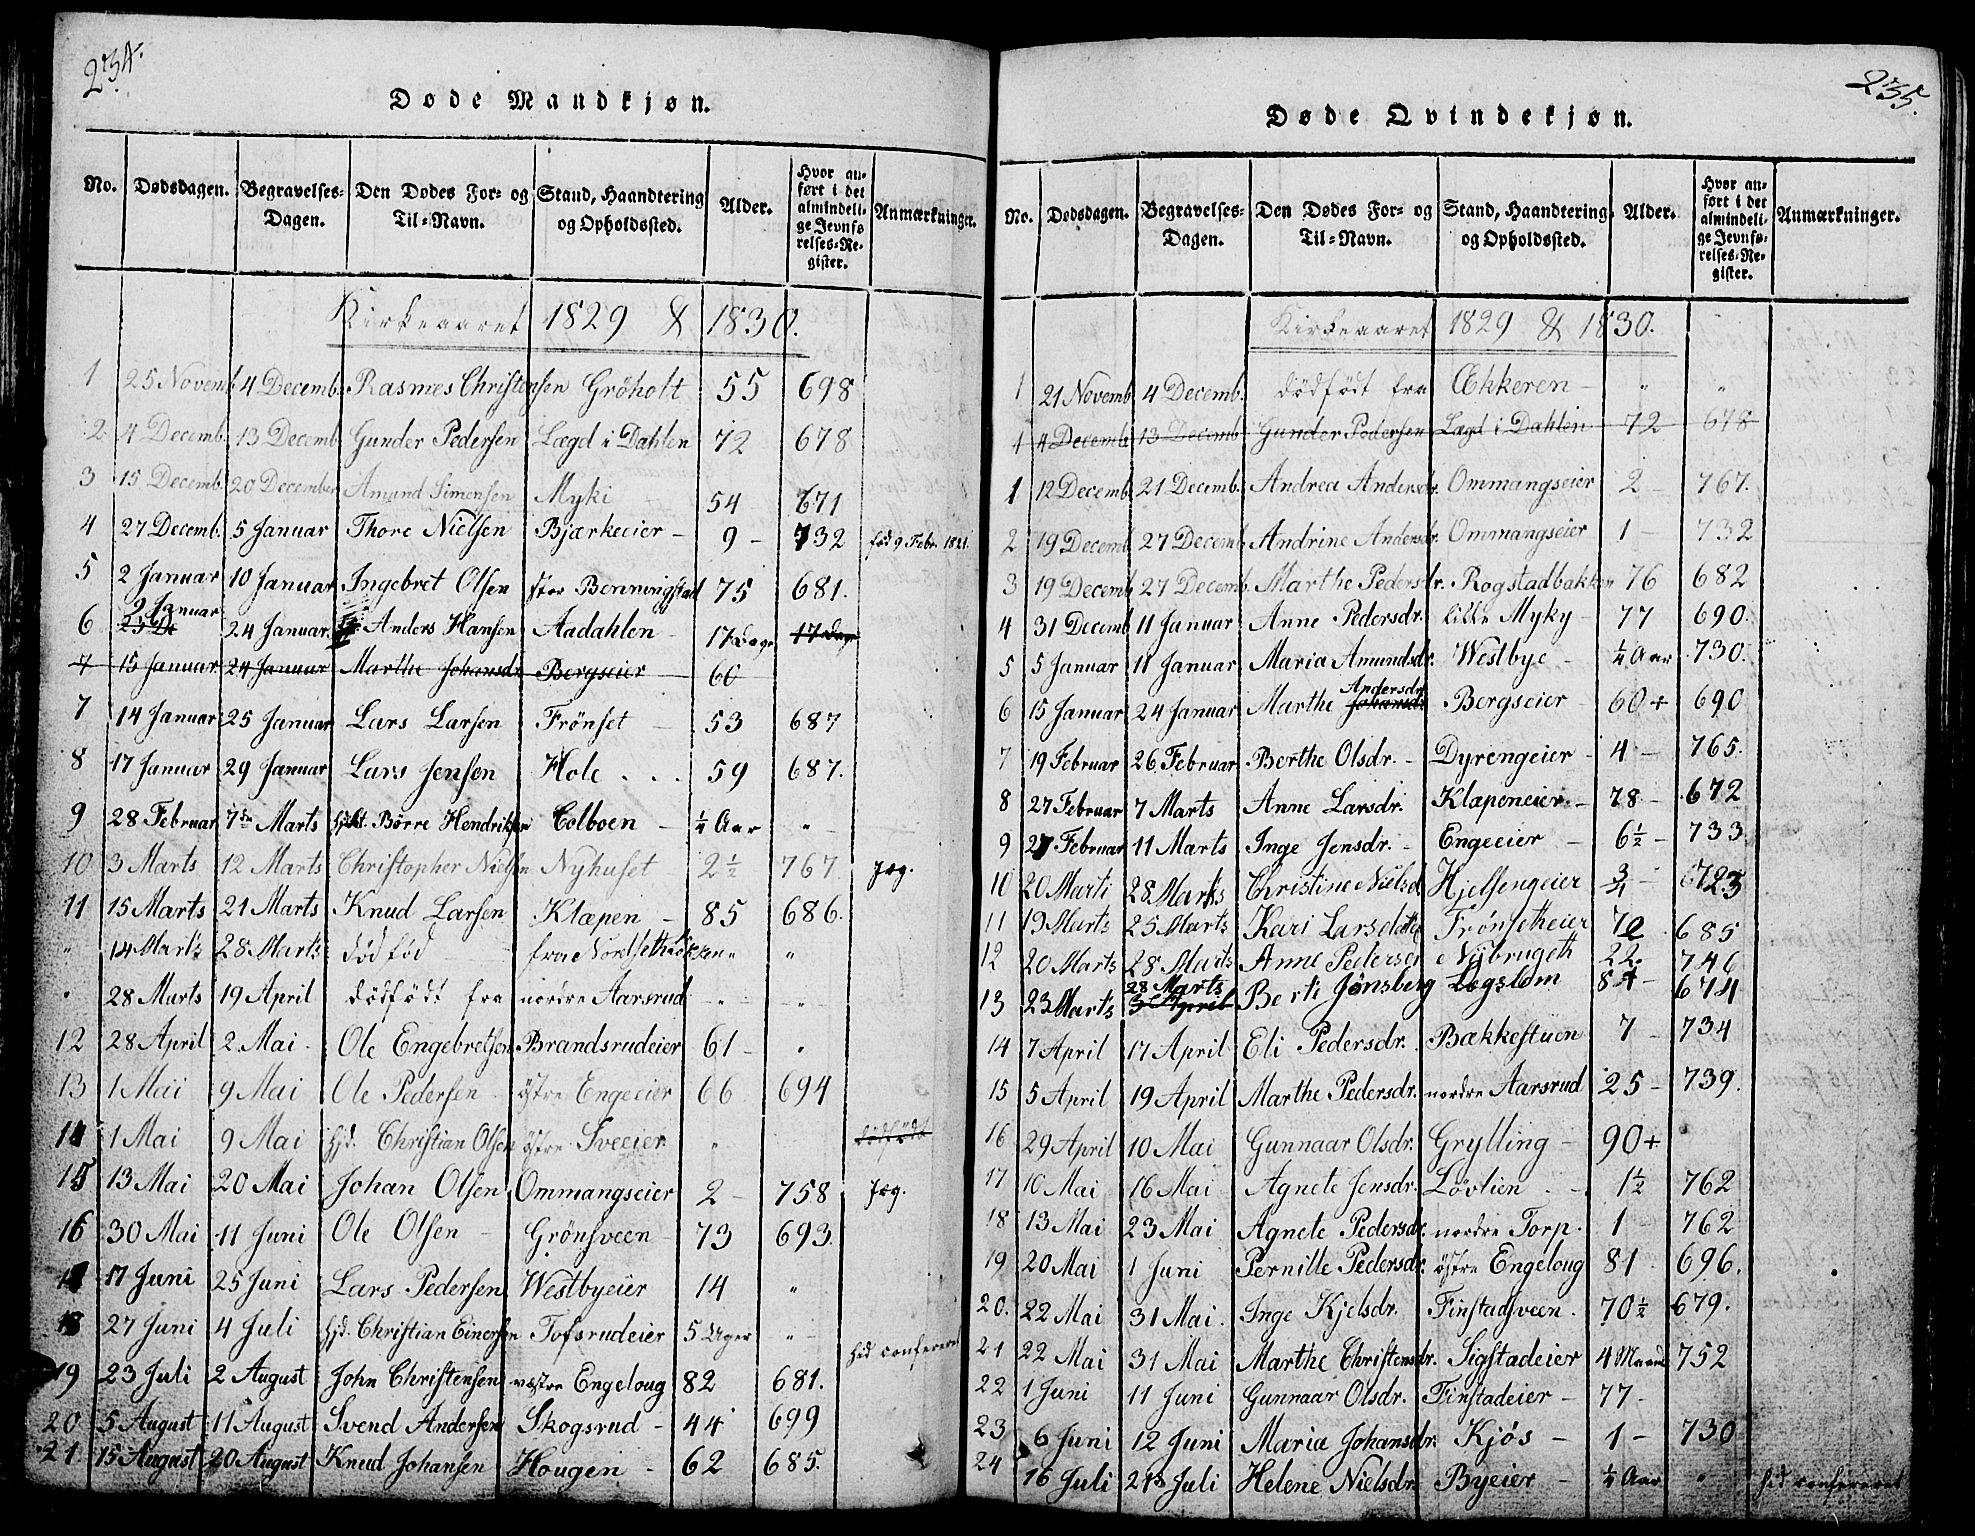 234.
Døde Mandkjøn.
No. Dødsdagen. Begravelses-Dagen. Den Dødes For- og Til-Navn. Stand, Haandtering og Opholdssted. Alder. Hvor anført i det almindelige Jevnførelses-Register. Anmærkninger.
Kirkeaaret 1829 & 1830.
1 25 Novemb 4 Decemb. Rasmes Christensen Gröholt 55 698
2 4 Decemb. 13 Decemb Gunder Pedersen Lægd i Dahlen 72 678
3 15 Decemb. 20 December Amund Simensen Myki 54 671
4 27 Decemb. 5 Januar Thore Nielsen Bjærkeeier - 9 - 732 fød 9 Febr. 1821.
5 2 Januar 10 Januar Ingebret Olsen stor Benningstad 75 681.
6 9 Januar 24 Januar Anders Hansen Aadahlen - 17 Dage 17 Dage
7 15 Januar 24 Januar Marthe Johansdr. Bergseier 60
7 14 Januar 25 Januar Lars Larsen Frönset - 53 687
8 17 Januar 29 Januar Lars Jensen Hole . . . 59 687.
9 28 Februar 7de Marts hjdt. Börre Hendriksen Colboen - ¼ Aar "
10 3 Marts 12 Marts Christopher Nielsen Nyhuset - 2½ 767 Jæg.
11 15 Marts 21 Marts Knud Larsen Klæpen - 85 686.
" 14 Marts 28 Marts dødfød fra Nordsetbakken " "
" 28 Marts 19 April dödfödt fra nordre Aarsrud " "
12 28 April 2 Mai Ole Engebretsen Brandsrudeier 61 - "
13 1 Mai 9 Mai Ole Pedersen östre Engeeier 66 694
14 1 Mai 9 Mai hjd. Christian Olsen östre Sveeier " dödfödt
15 13 Mai 20 Mai Johan Olsen Ommangseier 2 - 758 Jæg.
16 30 Mai 11 Juni Ole Olsen - Grönsveen 73 693.
17 17 Juni 25 Juni Lars Pedersen Westbyeier 14 "
18 27 Juni 4 Juli hjd. Christian Einersen Tofsrudeier 5 Uger " hid confereret
19 23 Juli 2 August John Christensen vestre Engeloug 82 681.
20 5 August 11 August Svend Andersen Skogsrud - 44 699
21 15 August 20 August Knud Johansen Hougen - 62 685.
235.
Døde Qvindekjøn.
No. Dødsdagen. Begravelses-Dagen. Den Dødes For- og Til-Navn. Stand, Haandtering og Opholdssted. Alder. Hvor anført i det almindelige Jevnførelses-Register. Anmærkninger.
Kirkeaaret 1829 & 1830.
1 21 Novemb. 4 Decemb. dödfödt fra Ækkeren - " "
1 4 Decemb. 13 Decemb Gunder Pedersen Lægd i Dahlen 72 678
1 12 Decemb. 21 Decemb. Andrea Andersdr. Ommangseier 2 - 767.
2 19 Decemb. 27 Decemb. Andrine Andersdr. Ommangseier 1 - 732
3 19 Decemb 27 Decemb. Marthe Pedersdr. Rogstadbakken 76 682
4 31 Decemb 11 Januar Anne Pedersdr. lille Myky - 77 690.
5 5 Januar 11 Januar Maria Amundsdr. Westbye - ¼ Aar 730.
6 15 Januar 24 Januar Marthe Johansdr. Andersdr. Bergseier 60 + 690
7 19 Februar 26 Februar Berthe Olsdr. - Dyrengeier - 4 - 765.
8 27 Februar 7 Marts Anne Larsdr. Klæpeneier - 78 - 672
9 27 Februar 11 Marts Inge Jensdr. - Engeeier - 6½ - 733
10 20 Marti 28 Marts Christine Nielsd. Hjelsengeier ¾ - 723
11 19 Marts 25 Marts Kari Larsdatter Frönsetheier 685
12 20 Marts 28 Marts Anne Pedersen Nybruget 22 746
13 23 Marts 28 Marts 3 April Berte Jönsberg Lægslem 84 - 674
14 7 April 17 April Eli Pedersdr. Bakkestuen 7 - 734
15 5 April 19 April Marthe Pedersdr. nordre Aarsrud 25 - 739.
16 29 April 10 Mai Gunnaar Olsdr. Grylling - 90 +
17 10 Mai 16 Mai Agnete Jensdr. Lövlien 1½ 762
18 13 Mai 23 Mai Agnete Pedersdr. nordre Torp. 1 762
19 20 Mai 1 Juni Pernille Pedersdr. östre Engeloug 81 696.
20. 22 Mai 31 Mai Inge Kjelsdr. Finstadsveen. 70½ 679.
21 22 Mai 31 Mai Marthe Christensdr. Sigstadeier 4 Maaned 752
22 1 Juni 11 Juni Gunnaar Olsdr. Finstadeier - 77 -
23 6 Juni 12 Juni Maria Johansdr. Kjös - 1 - 730
24 16 Juli 21 Juli Helene Nielsdr. Byeier - ¼ Aar " hid confereret